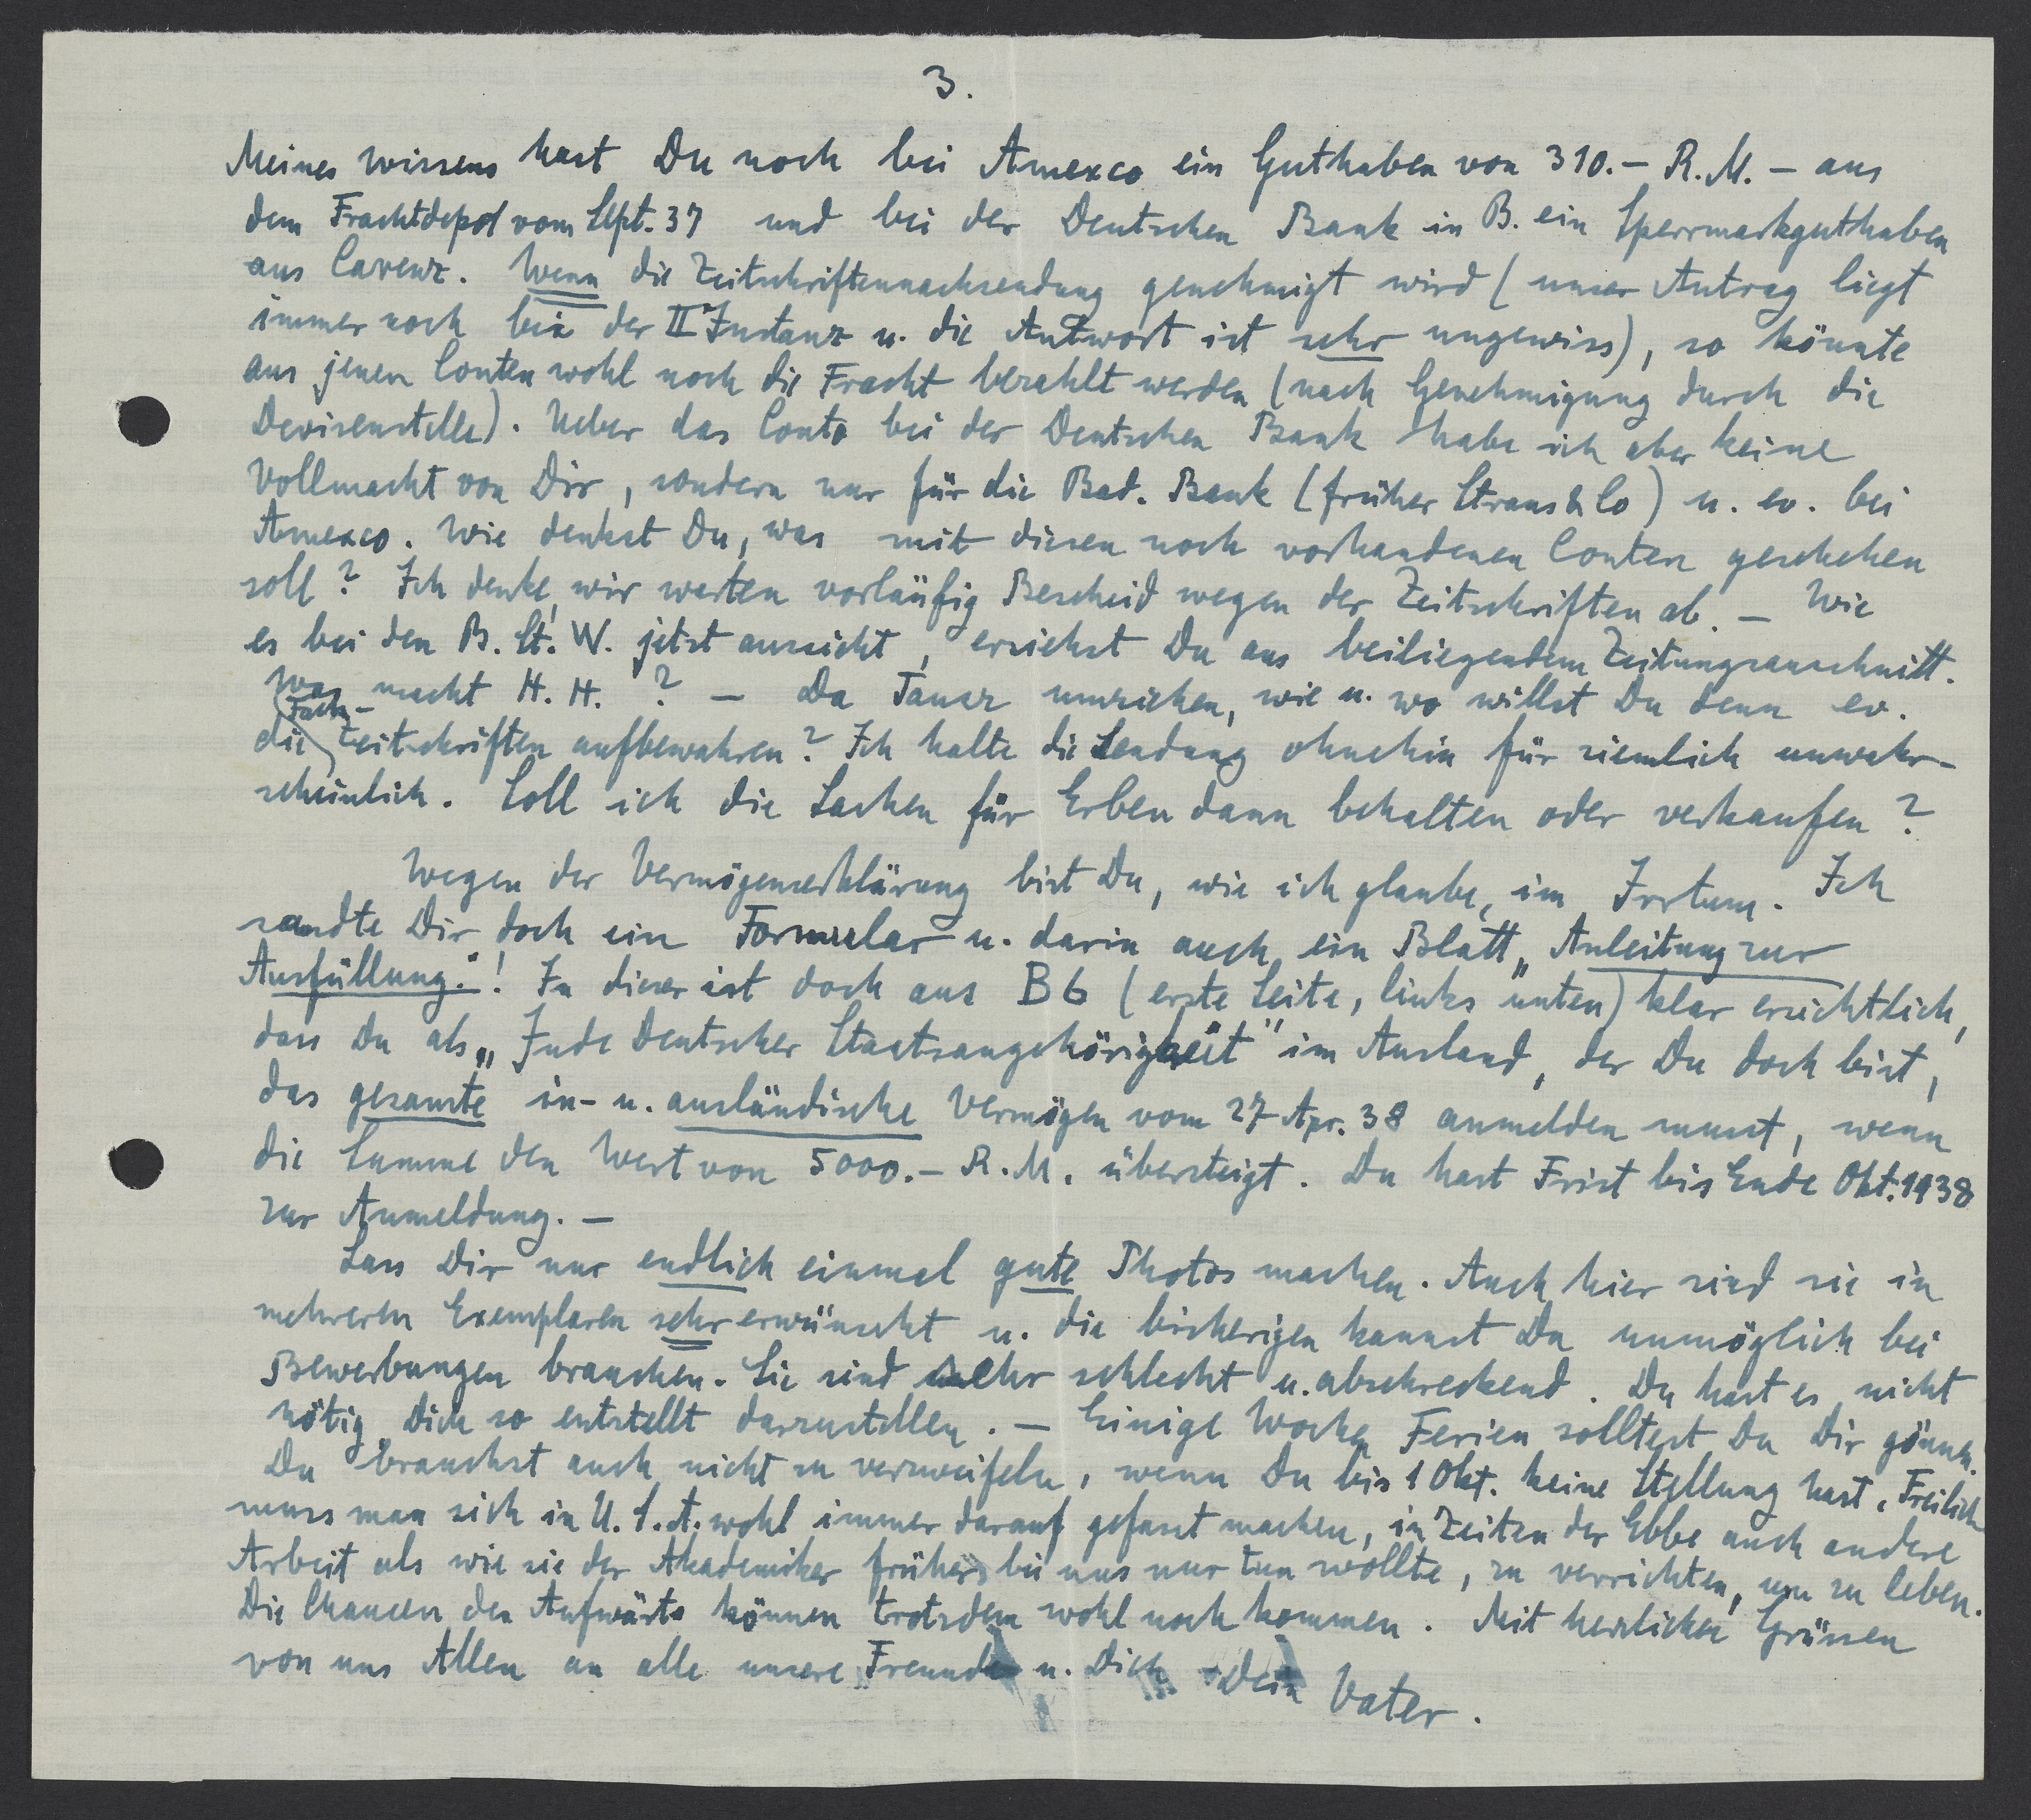 3.
Meines Wissens hast Du noch bei Amexco ein Guthaben von 310.– R.M. – aus
dem Frachtdepot vom Sept. 37 und bei der Deutschen Bank in B. ein Sperrmarkguthaben
aus Carenz. Wenn die Zeitschriftennachsendung genehmigt wird (unser Antrag liegt
immer noch bei der II Instanz u. die Antwort ist sehr ungewiss), so könnte
aus jenen Conten wohl noch die Fracht bezahlt werden (nach Genehmigung durch die
Devisenstelle). Ueber das Conto bei der Deutschen Bank habe ich aber keine
Vollmacht von Dir, sondern nur für die Bad. Bank (früher Straus & Co) u. ev. bei
Amexco. Wie denkst Du, was mit diesen noch vorhandenen Conten geschehen
soll? Ich denke, wir warten vorläufig Bescheid wegen der Zeitschriften ab. – Wie
es bei den B. St. W. jetzt aussieht, ersiehst Du aus beiliegendem Zeitungsausschnitt.
Was macht H. H.? – Da Tanzz umziehen, wie u. wo willst Du denn ev.
die Fach-Zeitschriften aufbewahren? Ich halte die Sendung ohnehin für ziemlich unwahr-
scheinlich. Soll ich die Sachen für Erben dann behalten oder verkaufen?
Wegen der Vermögenserklärung bist Du, wie ich glaube, im Irrtum. Ich
sandte Dir doch ein Formular u. darin auch ein Blatt „Anleitung zur
Ausfüllung."! In dieser ist doch aus B6 (erste Seite, links unten) klar ersichtlich,
dass Du als „Jude Deutscher Staatsangehörigkeit" im Ausland, der Du doch bist,
das gesamte in- u. ausländische Vermögen vom 27 Apr. 38 anmelden musst, wenn
die Summe den Wert von 5000.– R.M. übersteigt. Du hast Frist bis Ende Okt. 1938
zur Anmeldung. –
Lass Dir nur endlich einmal gute Photos machen. Auch hier sind sie in
mehreren Exemplaren sehr erwünscht u. die bisherigen kannst Du unmöglich bei
Bewerbungen brauchen. Sie sind sehr schlecht u. abschreckend. Du hast es nicht
nötig Dich so entstellt darzustellen. – Einige Woche Ferien solltest Du Dir gönnen.
Du brauchst auch nicht zu verzweifeln, wenn Du bis 1 Okt. keine Stellung hast. Freilich
muss man sich in U.S.A. wohl immer darauf gefasst machen, in Zeiten der Ebbe auch andere
Arbeit als wie sie der Akademiker früher bei uns nur tun wollte, zu verrichten, um zu leben.
Die Chancen des Aufwärts können trotzdem wohl noch kommen. Mit herzlichen Grüssen
von uns Allen an alle unsere Freunde u. Dich Dein Vater.